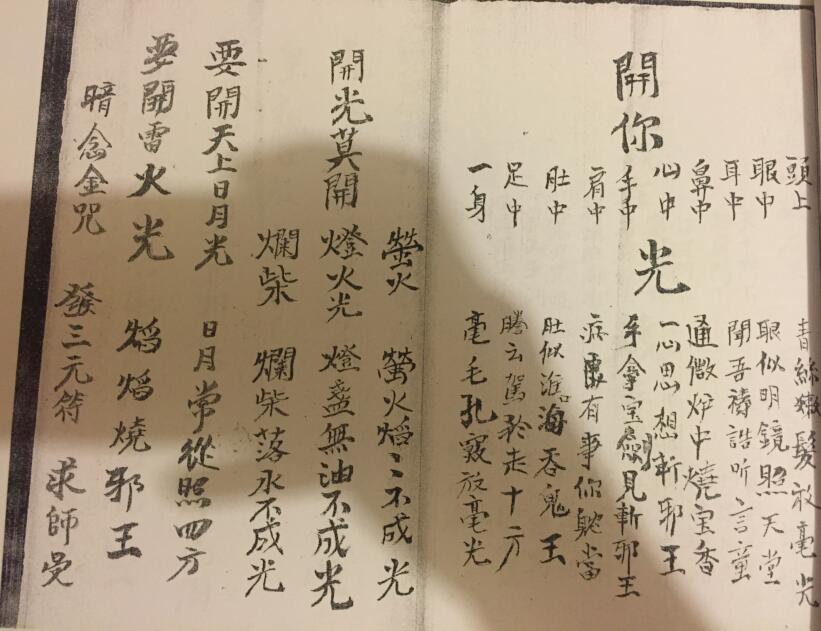 頭上 青絲嫩髮放毫光
眼中 眼似明鏡照天堂
耳中 聞吾禱誥听言童
鼻中 通微炉中燒宝香
開你光
心中 一心思想斬邪王
手中 手拿宝劍見斬邪王
肩中 有事你躭當
肚中 肚似海吞鬼王
足中 騰云駕走十方
一身 毫毛孔竅放毫光
螢火 螢火焰〻不成光
開光莫開燈火光 燈盞無油不成光
爛柴 爛柴落水不成光
要開天上日月光 日月常從照四方
要開雷火光 焰焰燒邪王
暗念金咒 發三元符 求師